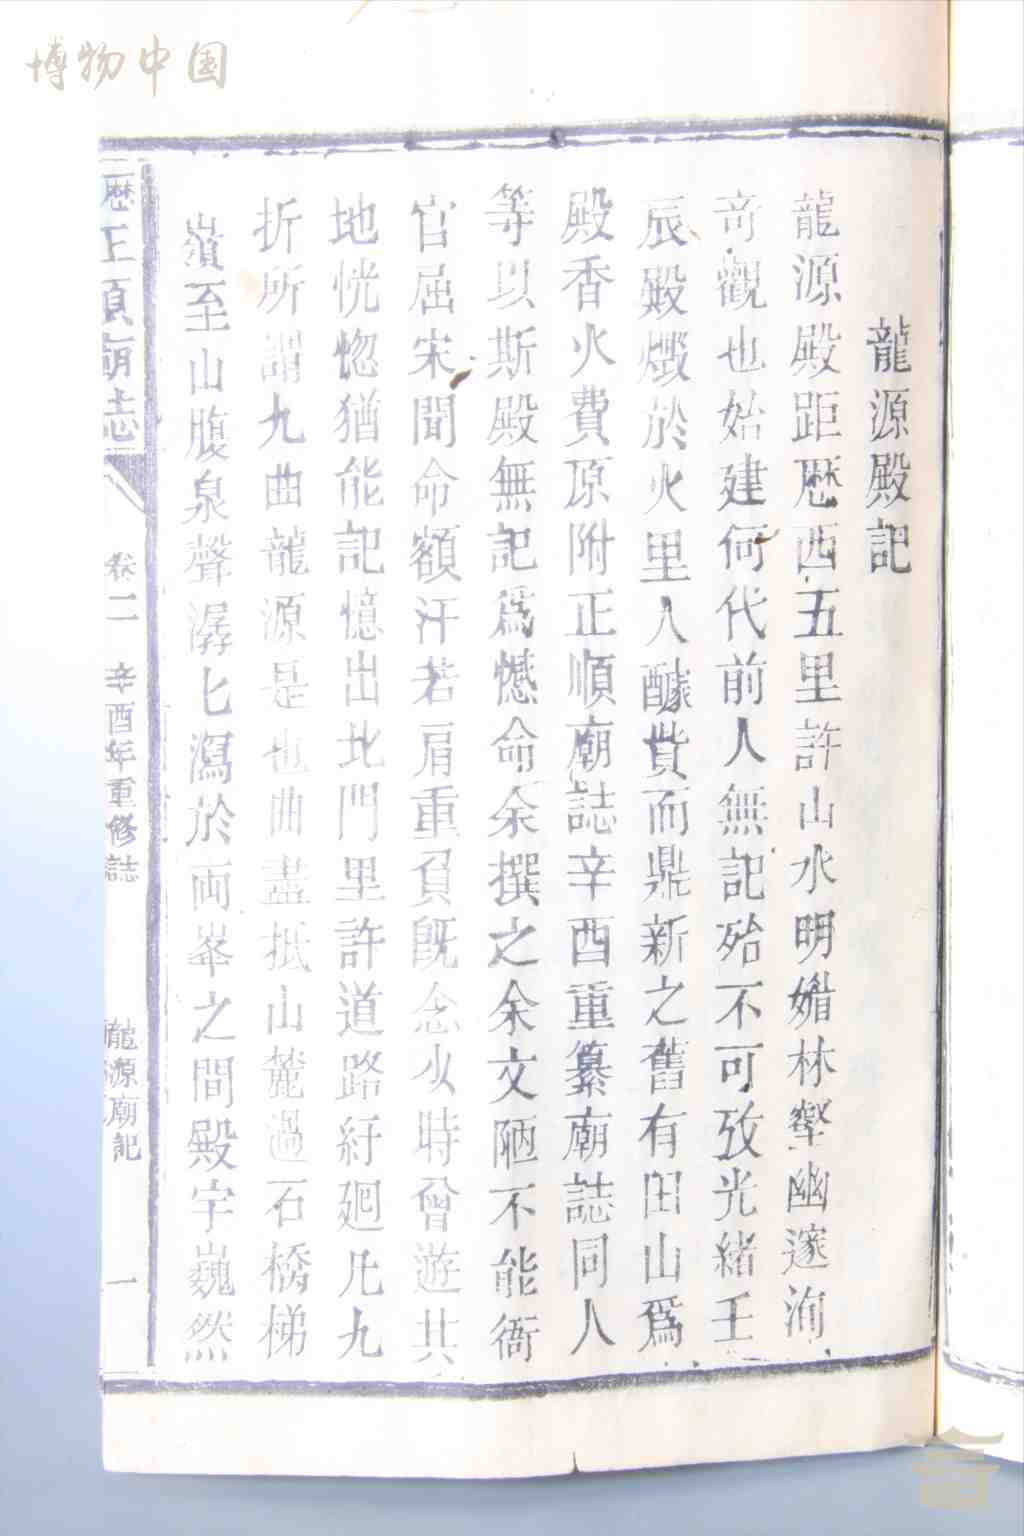 博物中国
龍源殿記
龍源殿距歷西五里許山水明媚林壑幽邃洵
奇觀也始建何代前人無記殆不可攷光緒壬
辰殿燬於火里人醵貲而鼎新之舊有田山爲
殿香火費原附正順廟誌辛酉重纂廟誌同人
等以斯殿無記爲憾命余撰之余文陋不能衙
官屈宋聞命額汗若肩重負旣念少時曾遊其
地恍惚猶能記憶出北門里許道路紆廻凡九
折所謂九曲龍源是也曲盡抵山麓過石橋梯
嶺至山腹泉聲潺匕瀉於両峯之間殿宇巍然
歷正順廟志
卷二
辛酉年重修誌
龍源廟記
一